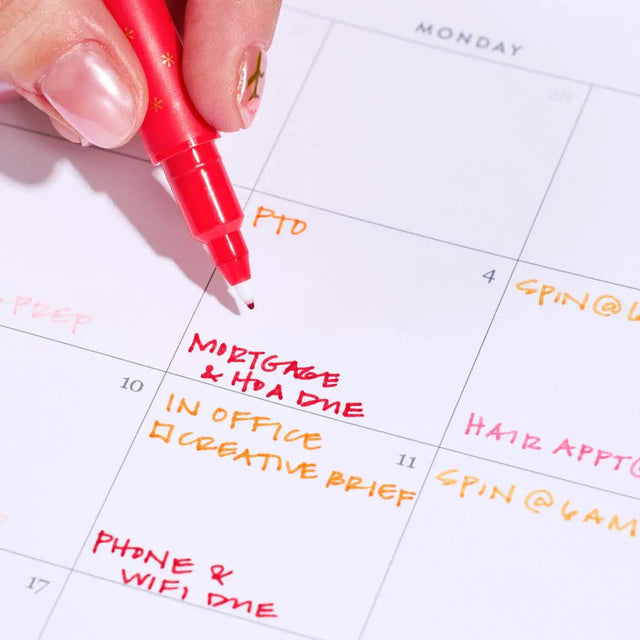 MONDAY
28
PTO
4
SPIN @ 6
PREP
MORTGAGE
& HOA DUE
HAIR APPT@
10
IN OFFICE
CREATIVE BRIEF
11
SPIN @ 6AM
PHONE &
WIFI DUE
17